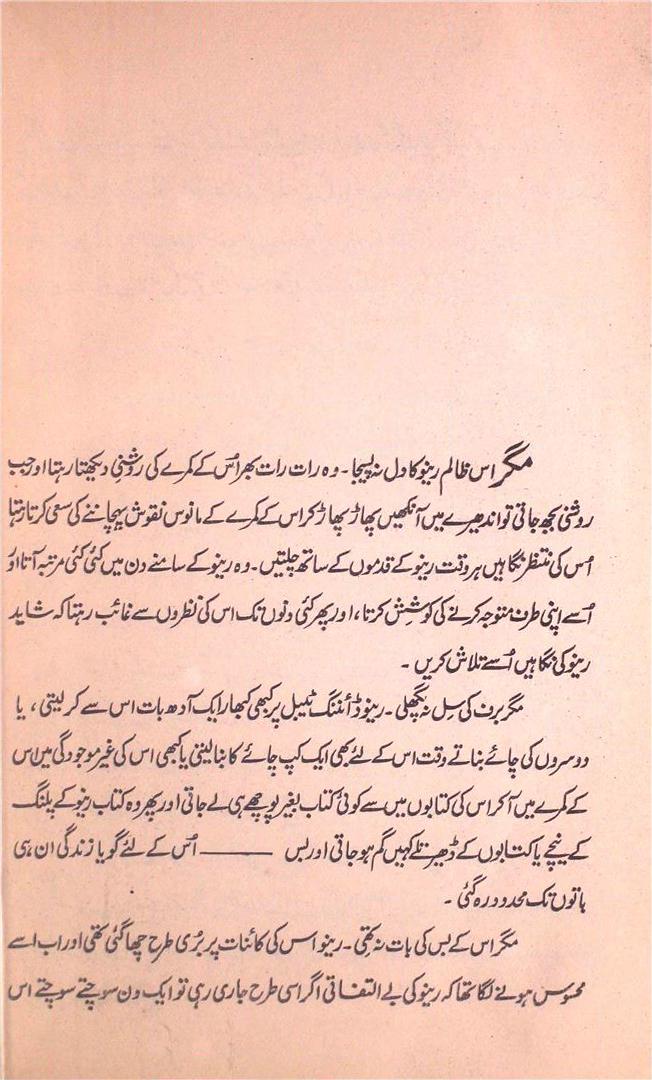 مگر اس ظالم رینو کا دل نہ پسیجا ۔ وہ رات رات بھر اُس کے کمرے کی روشنی دیکھتا رہتا اور جب
روشنی بجھ جاتی تو اندھیرے میں آنکھیں پھاڑ پھاڑ کر اس کے کمرے کے مانوس نقوش پہچاننے کی سعی کرتا رہتا
اُس کی منتظر نگاہیں ہر وقت رینو کے قدموں کے ساتھ چلتیں ۔ وہ رینو کے سامنے دن میں کئی کئی مرتبہ آتا اور
اُسے اپنی طرف متوجہ کرنے کی کوشش کرتا ، اور پھر کئی دنوں تک اس کی نظروں سے غائب رہتا کہ شاید
رینو کی نگاہیں اُسے تلاش کریں ۔
مگر برف کی سِل نہ پگھلی ۔ رینو ڈائننگ ٹیبل پر کبھی کبھار ایک آدھ بات اس سے کر لیتی ، یا
دوسروں کی چائے بناتے وقت اس کے لئے بھی ایک کپ چائے کا بنا لیتی یا کبھی اس کی غیر موجودگی میں اس
کے کمرے میں آ کر اس کی کتابوں میں سے کوئی کتاب بغیر پوچھے ہی لے جاتی اور پھر وہ کتاب رینو کے پلنگ
کے نیچے یا کتابوں کے ڈھیر تلے کہیں گم ہو جاتی اور بس ——— اُس کے لئے گویا زندگی ان ہی
باتوں تک محدود رہ گئی ۔
مگر اس کے بس کی بات نہ تھی ۔ رینو اس کی کائنات پر بُری طرح چھا گئی تھی اور اب اسے
محسوس ہونے لگا تھا کہ رینو کی بے التفاتی اگر اسی طرح جاری رہی تو ایک دن سوچتے سوچتے اس